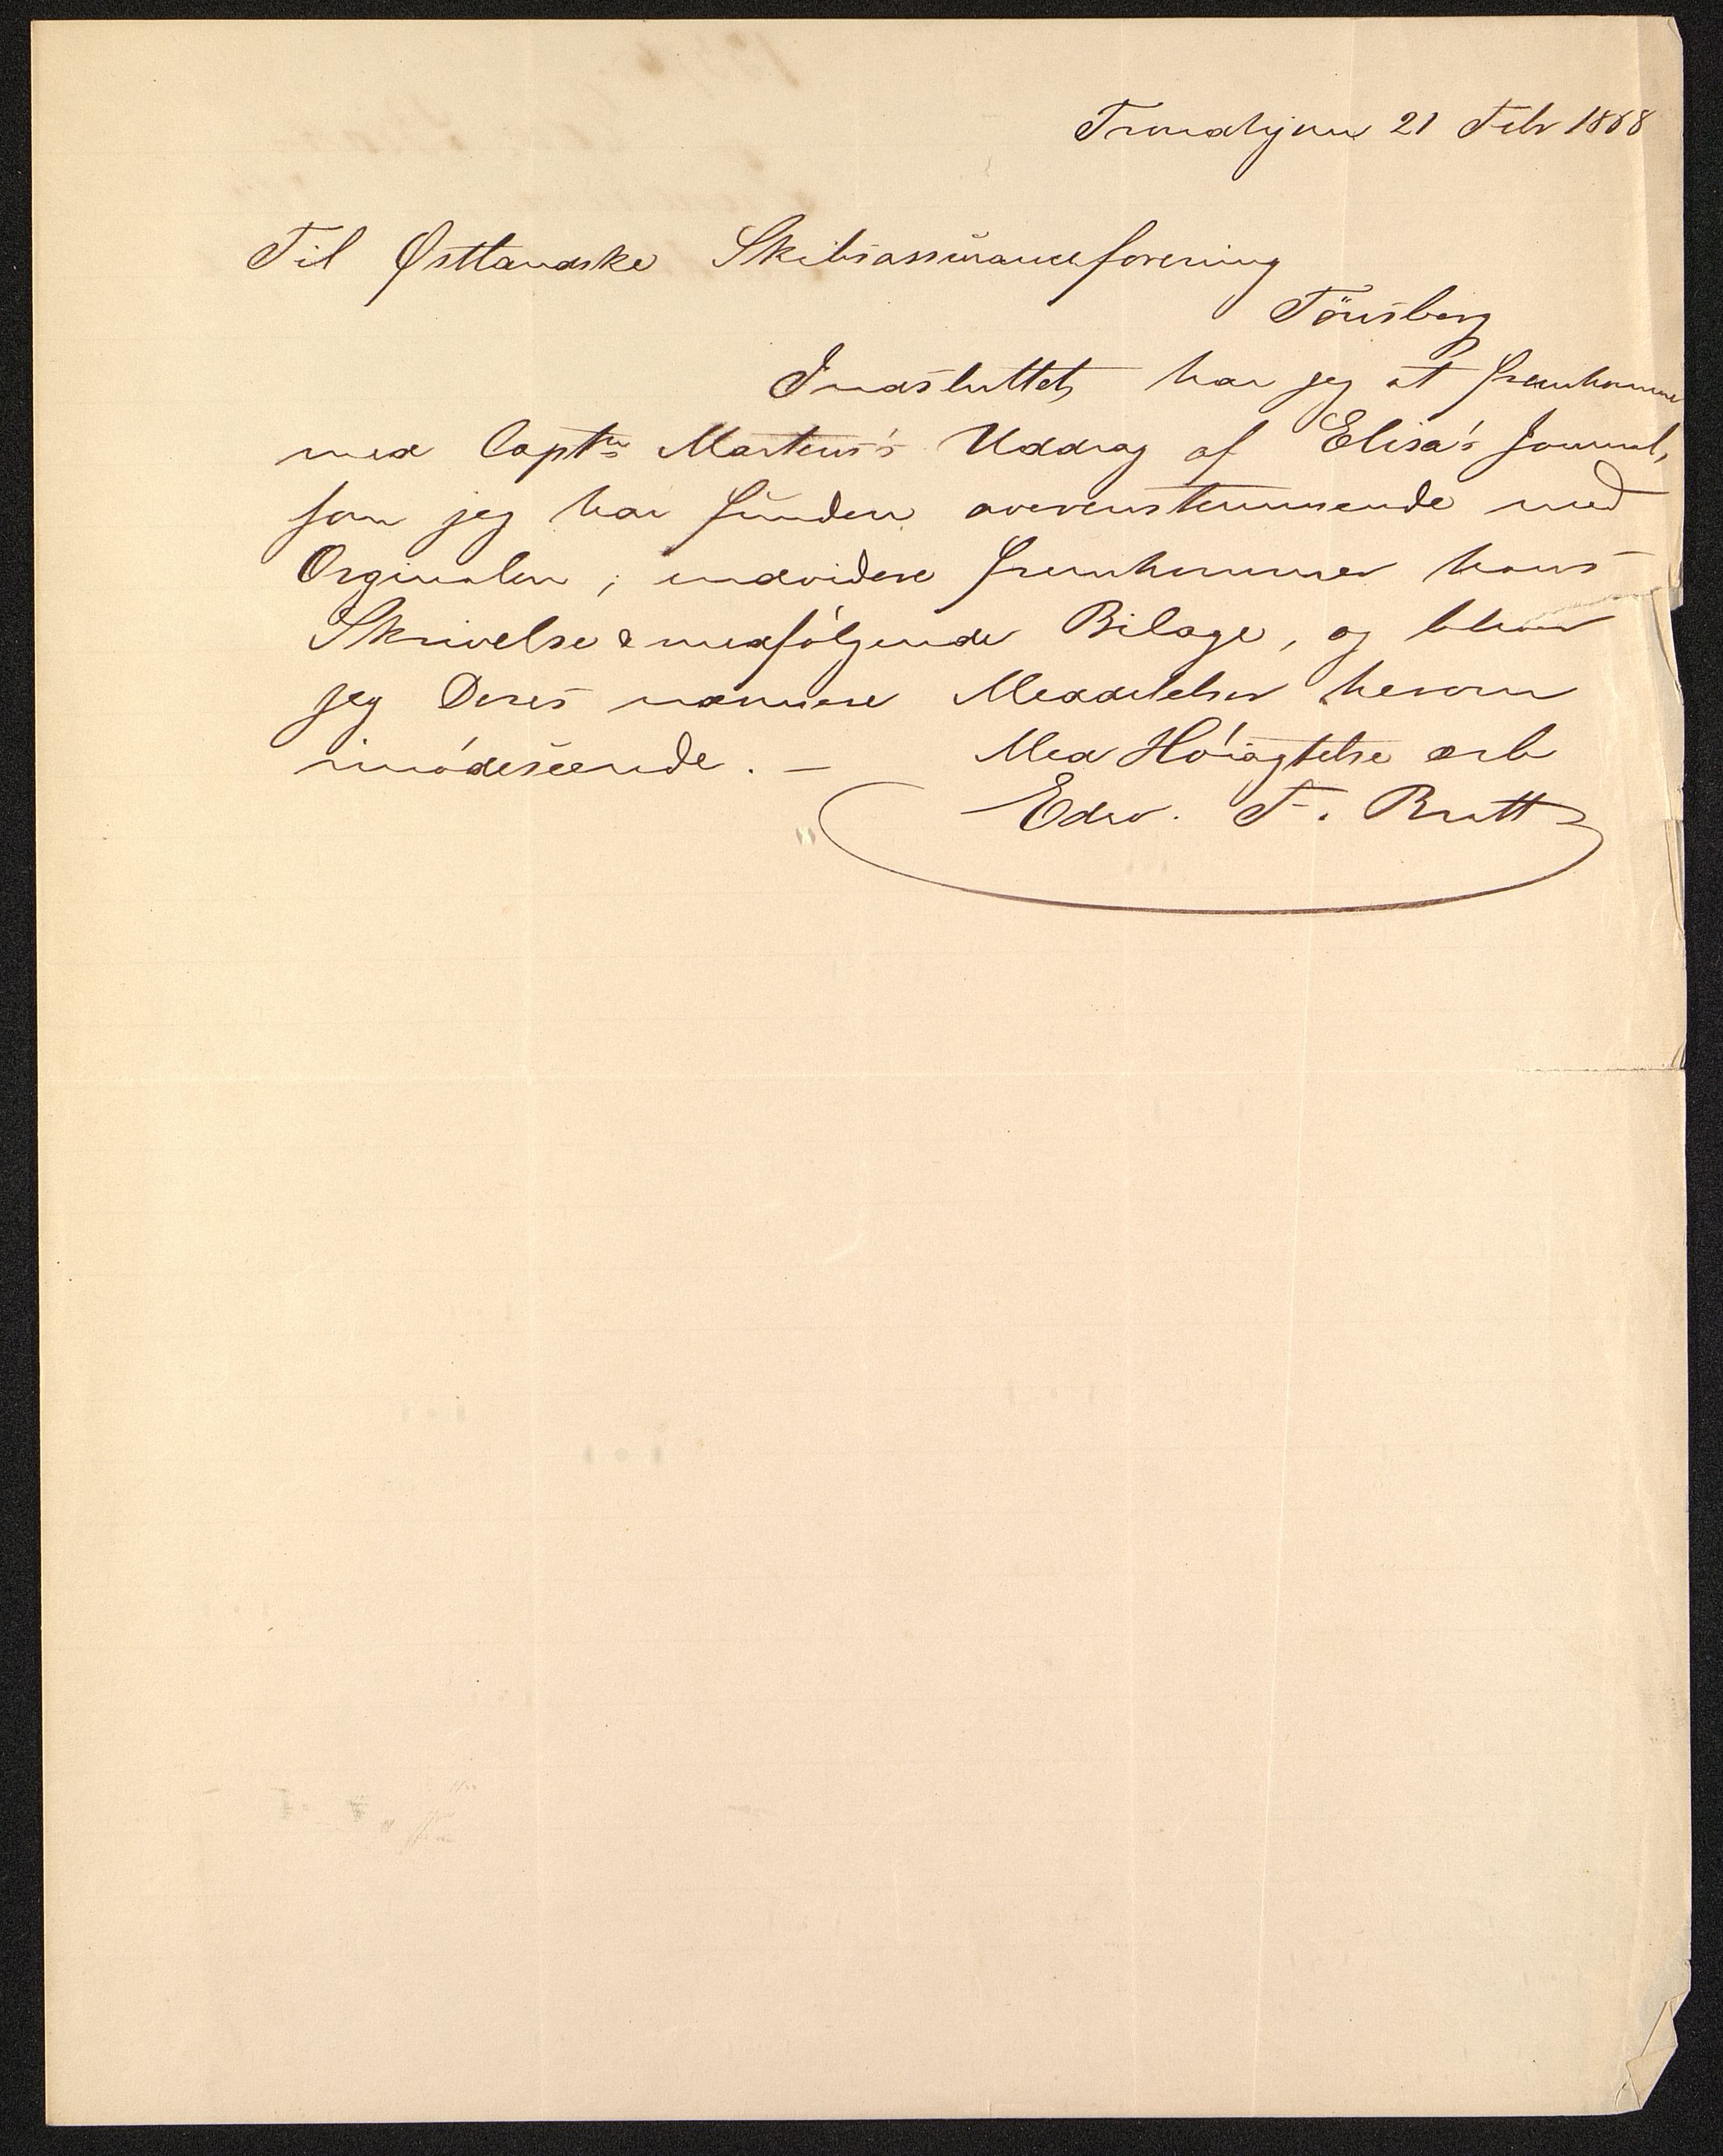 Trondhjem 21 Febr 1868
Til Østlandske Skibsassuranceforening
Tönsberg
Indsluttet har jeg at fremkomme
med Captn Martens's Uddrag af Elisa's Journal,
som jeg har funden overenstemmende med
Orginalen, endvidere fremkommer hans
Skrivelse & medfølgende Bilage, og bliver
jeg Deres nærmere Meddelelser herom
imödeseende. —
Med Höiagtelse erb
Edw. F. Bratt